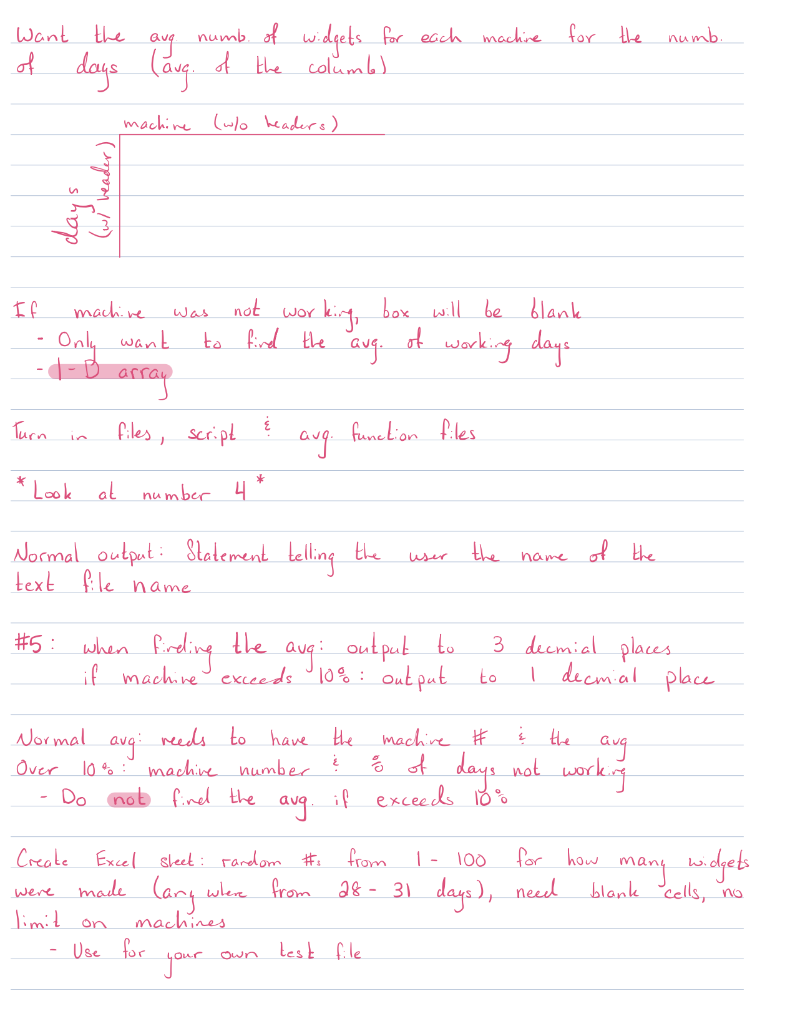 Want the avg numb. of widgets for each machine for the numb.
of days (avg. of the columb)
machine (w/o headers)
days
(w/ header)
If machine was not working, box will be blank
- Only want to find the avg. of working days
- 1-D array
Turn in files, script & avg. function files
*Look at number 4*
Normal output: Statement telling the user the name of the
text file name
#5: when finding the avg: output to 3 decmial places
if machine exceeds 10%: output to 1 decmial place
Normal avg: needs to have the machine # & the avg
Over 10%: machine number & % of days not working
- Do not find the avg. if exceeds 10%
Create Excel sheet: random #s from 1-100 for how many widgets
were made (any where from 28-31 days), need blank cells, no
limit on machines
- Use for your own test file